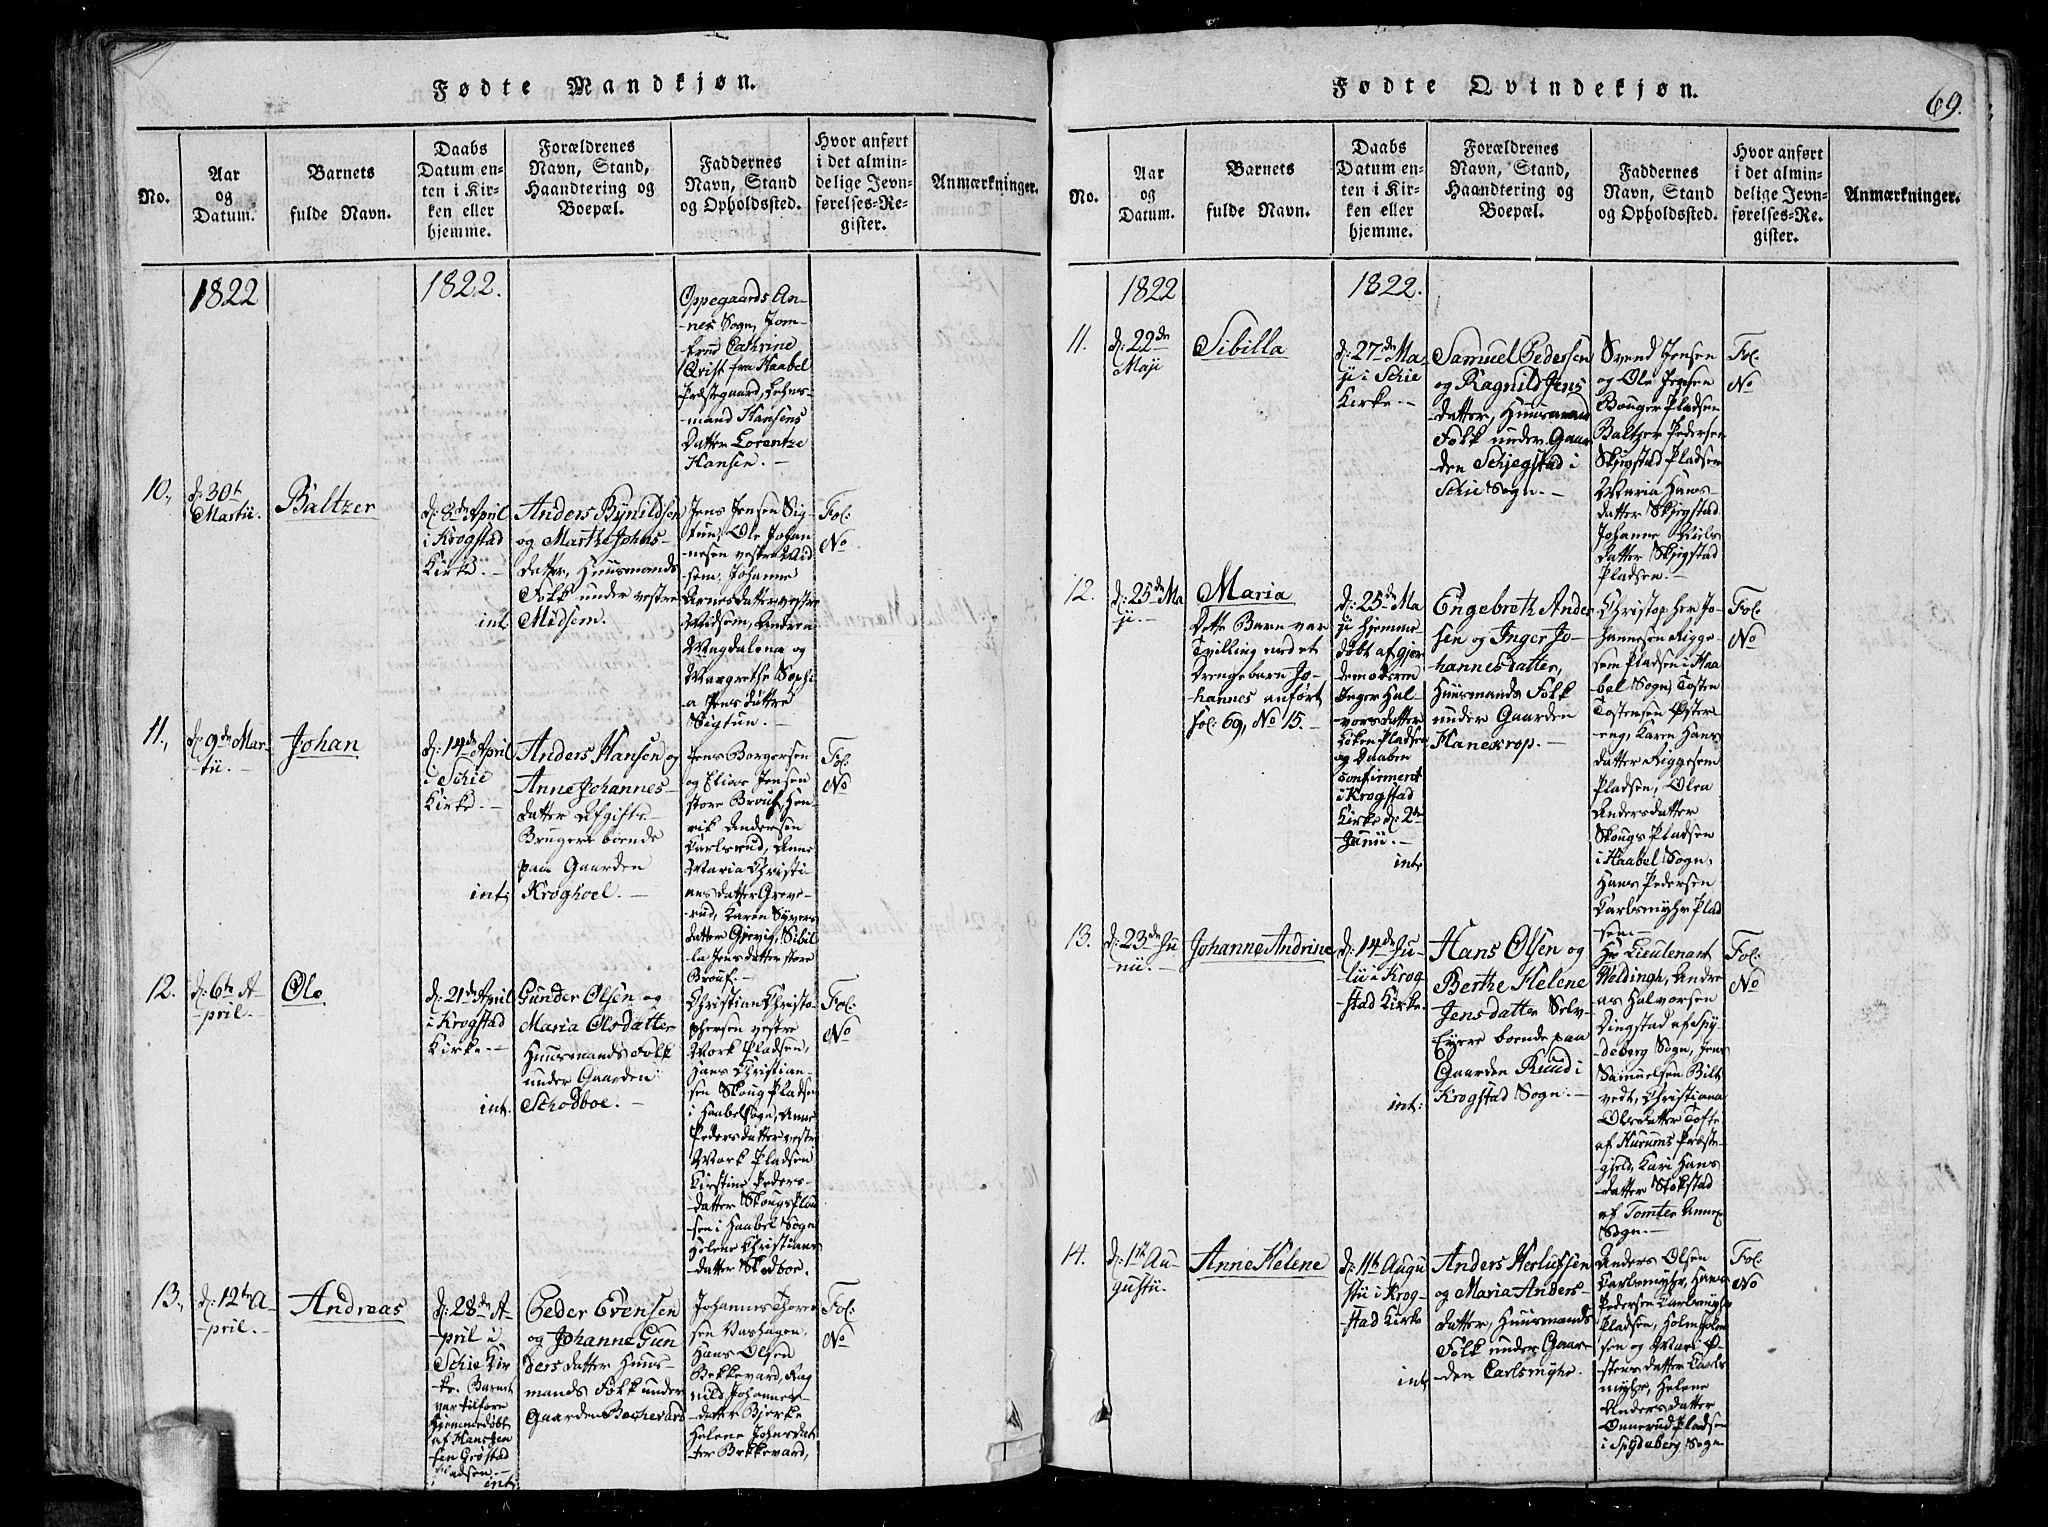 Fødte Mandkjøn.
No.
Aar
og
Datum.
Barnets
fulde Navn.
Daabs
Datum en-
ten i Kir-
ken eller
hjemme.
Forældrenes
Navn, Stand,
Haandtering og
Boepæl.
Faddernes
Navn, Stand
og Opholdssted.
Hvor anført
i det almin-
delige Jevn-
førelses-Re-
gister.
Anmærkninger.
1822
1822.
Oppegaards An-
nex Sogn, Jom-
frue Cathrine
Qvist fra Haabel
Præstegaard, Lehns-
mand Hansens
Datter Lorentze
Hansen.
10.,
d: 30te
Martii.
Baltzer
d: 8de April
i Krogstad
Kirke.
Anders Bynildsen
og Marthe Johns-
datter, Huusmands
Folk under vestre
int. Midsem.
Jens Jensen Sig-
tun, Ole Johan-
nesen vestre Mid
sem, Johanne
Arnesdatter vestre
Midsem, Andrea
Magdalena og
Margrethe Sophi-
a Jensdøttre
Sigtun.
Fol:
No
11.,
d: 9de Mar-
tii.
Johan
d: 14de April
i Schie
Kirke.
Anders Hansen og
Anne Johannes-
datter Afgifts-
Brugere boende
paa Gaarden
int; Kroghoel.
Jens Borgersen
og Elias Jensen
store Brouf, Hen-
rik Andersen
Carlsrud, Anne
Maria Christi-
ansdatter Greve-
rud, Karen Syvers
datter Gjevig, Sibil-
la Jensdatter store
Brouf.
Fol.
No
12.
d: 6te A-
pril.
Ole
d: 21de April
i Krogstad
Kirke.
Gunder Olsen og
Maria Olsdatter
Huusmands Folk
under Gaarden
int. Schodboe.
Christian Christo-
phersen vestre
Mork Pladsen,
Hans Christian-
sen Skoug Pladsen
i Haabel Sogn, Anne
Pedersdatter vestre
Mork Pladsen
Kirstine Peders-
datter Skougs Plad-
sen i Haabel Sogn
Helene Christians
datter Skodboe.
Fol:
No
13.,
d: 12te A-
pril.
Andreas
d: 28de A-
pril i
Schie Kir
ke. Barnet
var tilforn
hjemmedøbt
af Hans
sen Grøstad
Pladsen
int;
Peder Evensen
og Johanne Gun
dersdatter Huus-
mands Folk under
Gaarden Bechevard
Johannes Thore
sen Vashagen,
Hans Olsen
Bekkevard, Rag
nild Johannes-
datter Bjerke
Helene Johnsdat
ter Bekkevard,
Fol:
No
Fødte Qvindekjøn.
69.
No.
Aar
og
Datum.
Barnets
fulde Navn.
Daabs
Datum en-
ten i Kir-
ken eller
hjemme.
Forældrenes
Navn, Stand,
Haandtering og
Boepæl.
Faddernes
Navn, Stand
og Opholdssted.
Hvor anført
i det almin-
delige Jevn-
førelses-Re-
gister.
Anmærkninger.
1822
1822.
11.
d: 22de
Maji
Sibilla
d: 27de Ma-
ji i Schie
Kirke.
Samuel Pedersen
og Ragnild Jens
datter, Huusmands
Folk under Gaar
den Schjegstad i
Schie Sogn.
Svend Jensen
og Ole Jensen
Bouger Pladsen
Baltzer Pedersen
Skjegstad Pladsen
Maria Hans-
datter Skjegstad
Johanne Nils
datter Skjegstad
Pladsen.
Fol:
No
12.
d: 25de Ma
ji.
Maria
Dette Barn var
Tvilling med et
Drengebarn Jo-
hannes anført
fol: 69, No 15.
d: 25de Ma
ji hjemme
døbt af Gjor
demoderen
Inger Hal-
vorsdatter
Løken Pladsen
og Daaben
confirmert
i Krogstad
Kirke d: 2de
Junii.
int;
Engebreth Ander
sen og Inger Jo-
hannesdatter,
Huusmands Folk
under Gaarden
Hanekrop.
Christopher Jo-
hannesen Rigge-
sem Pladsen i Haa
bel Sogn, Tosten
Tostensen Øster-
eng, Karen Hans
datter Riggesem
Pladsen, Olea
Andersdatter
Skougs Pladsen
i Haabel Sogn,
Hans Pedersen
Carlsmyhr Plad
sen.
Fol:
No
13.
d: 23de Ju
nii.
Johanne Andrine
d: 14de Ju-
lii i Krog
stad Kirke
int:
Hans Olsen og
Berthe Helene
Jensdatter Selv-
Eyere boende paa
Gaarden Ruud i
Krogstad Sogn.
Hr Lieutenant
Weldingh, Andre
as Halvorsen
Dingstad af Spy-
deberg Sogn, Jens
Samuelsen Bilt
vedt, Christiana
Olsdatter Tofte
af Hurums Præste-
gjeld, Kari Hans
datter Stokstad
af Tomter Annex
Sogn.
Fol.
No
14.
d: 1ste Au-
gustii.
Anne Helene
d: 11te Augu
stii i Krog-
stad Kirke
int
Anders Herlufsen
og Maria Anders-
datter, Huusmands
Folk under Gaar-
den Carlsmyhr.
Anders Olsen
Carlsmyhr, Hans
Pedersen Carlsmyhr
Pladsen, Holm Holm
sen og Mari Ø-
stensdatter Carls
myhr, Helene
Andersdatter
Onnerud Pladsen
i Spydeberg Sogn
Fol.
No